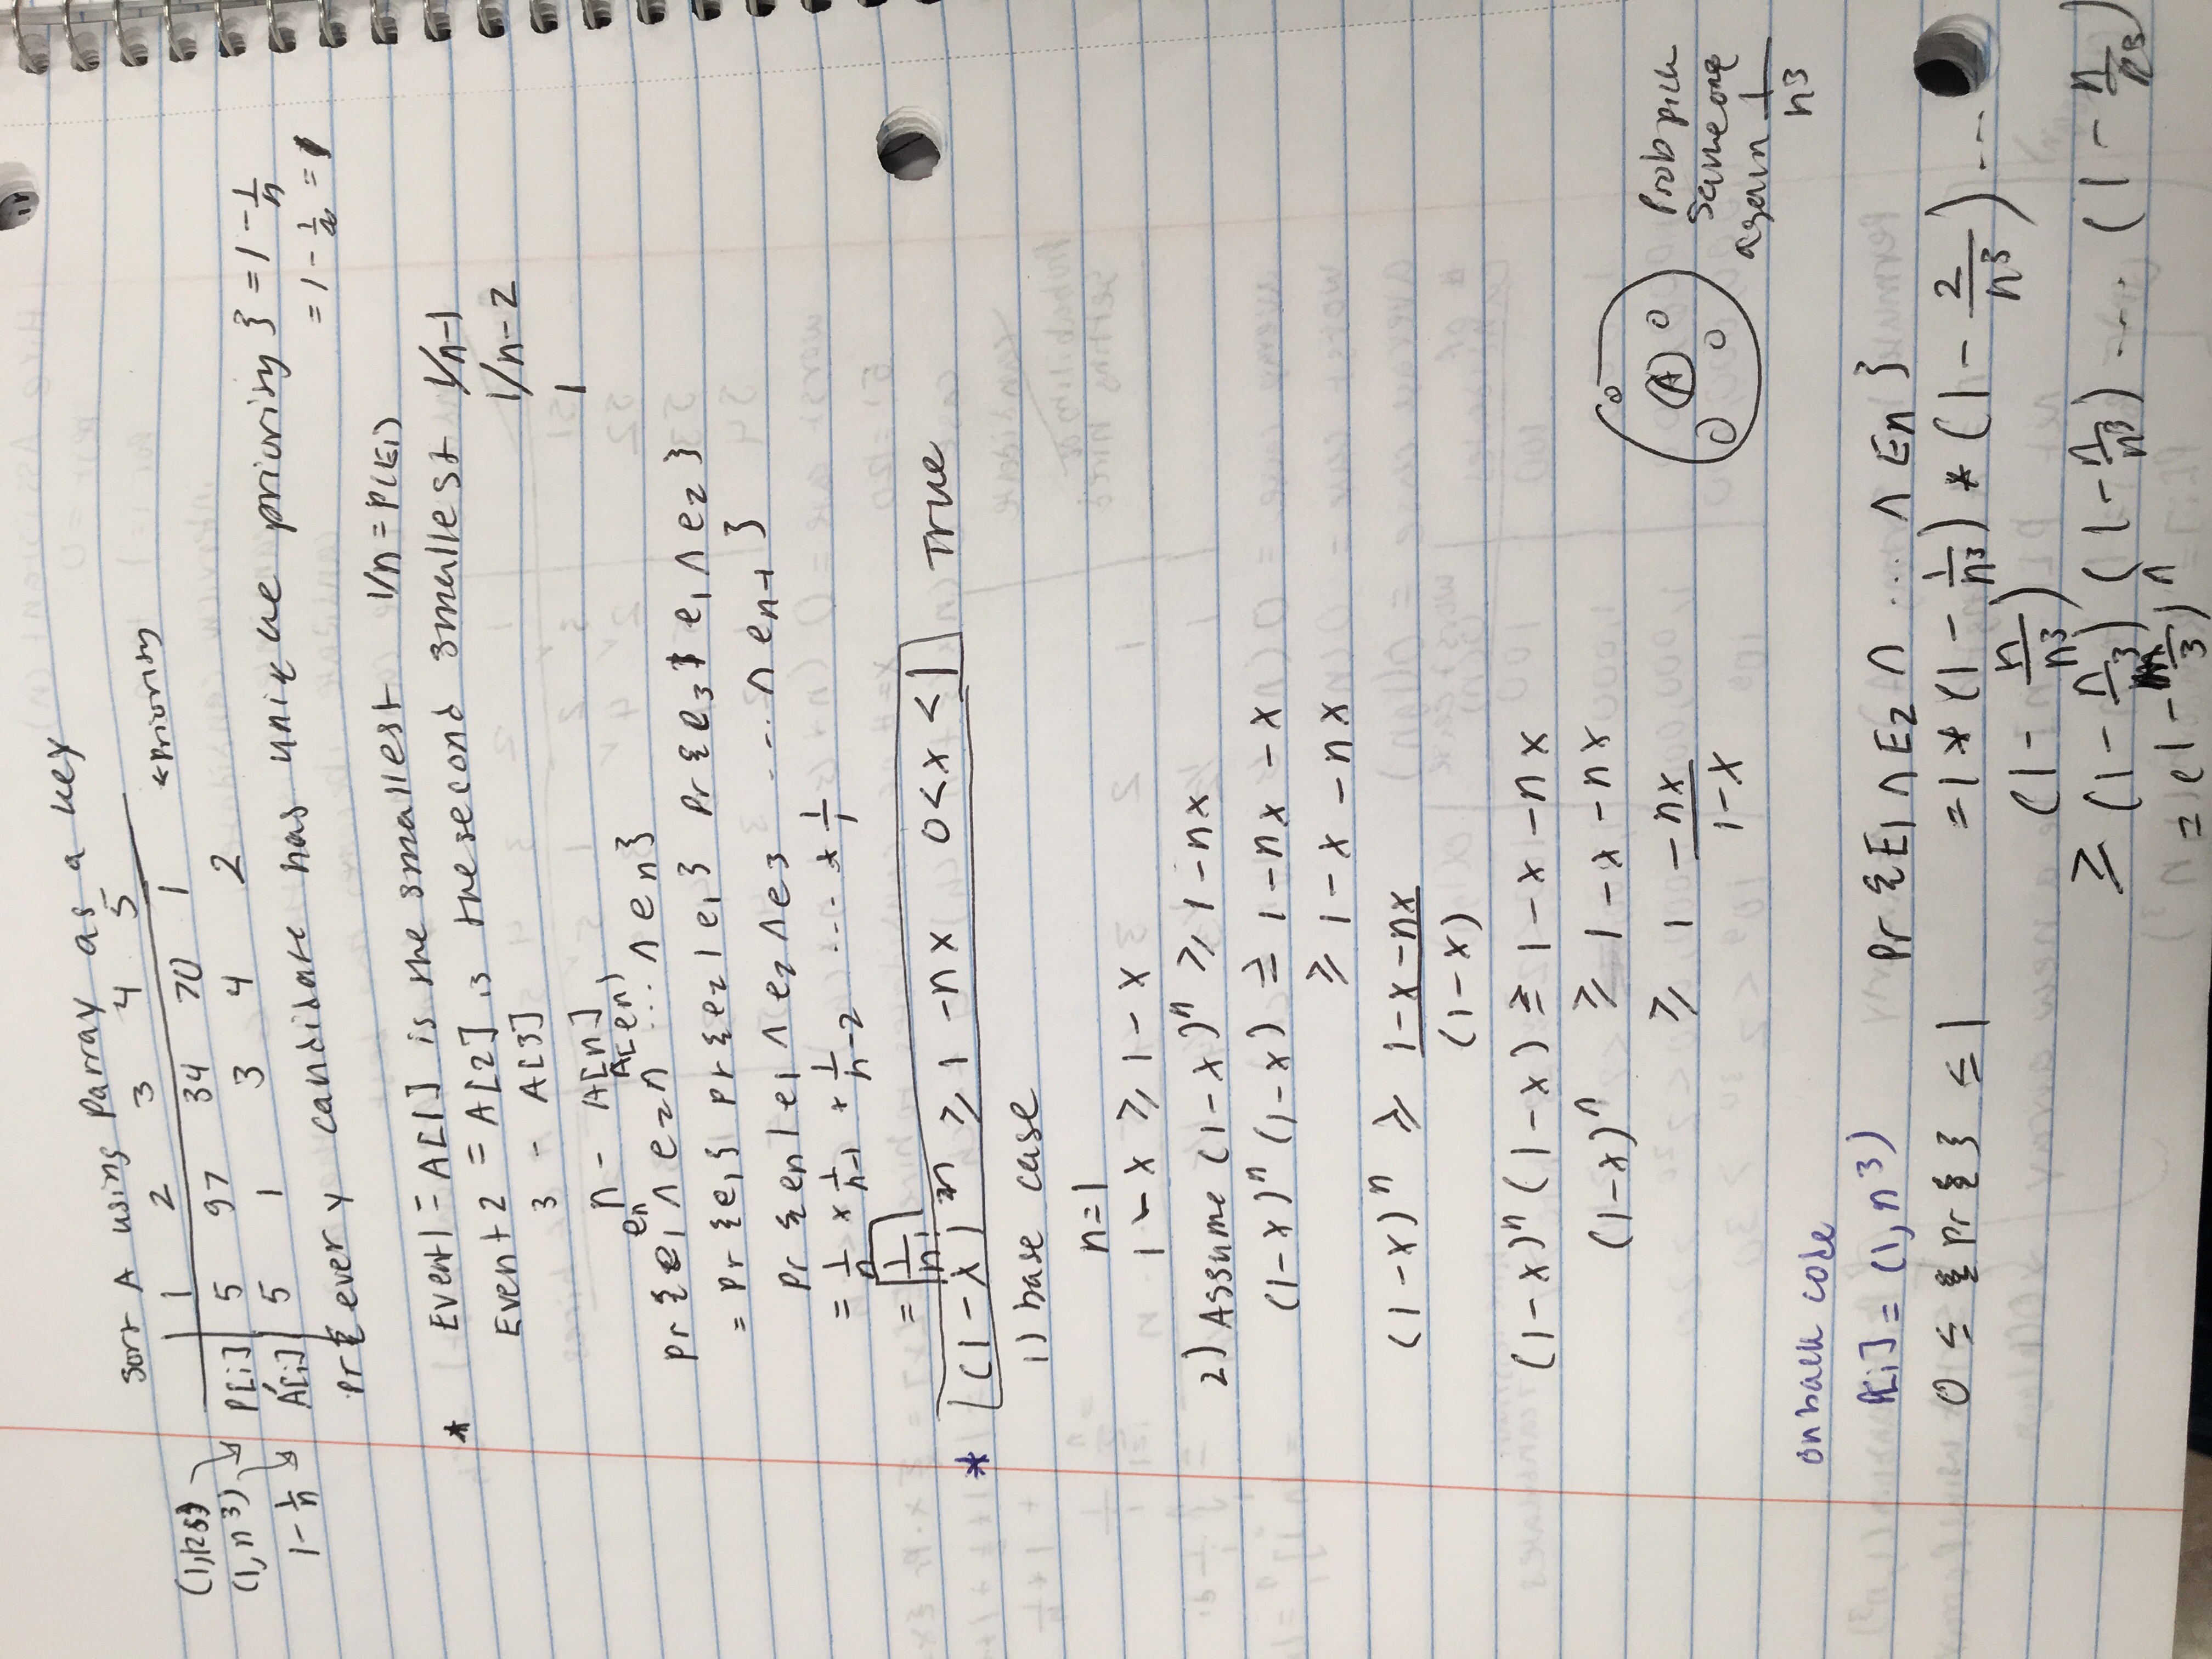 Sort A using Parray as a key
1 2 3 4 5
(1,125)
P[i] 5 97 34 70 1 ←Priority
(1, n³)
A[i] 5 1 3 4 2
1 - 1/n
Pr{every candidate has unique priority} = 1 - 1/n
= 1 - 1/∞ = 1
* Event 1 = A[1] is the smallest 1/n = P(E1)
Event 2 = A[2] is the second smallest 1/n-1
3 - A[3] 1/n-2
n - A[n] 1
en A[en]
Pr{e1 ∩ e2 ∩ ... ∩ en}
= Pr{e1} Pr{e2 | e1} Pr{e3 | e1 ∩ e2}
Pr{en | e1 ∩ e2 ∩ e3 ... ∩ en-1}
= 1/n * 1/n-1 * 1/n-2 ... * 1/1
= 1/n!
* (1-x)ⁿ ≥ 1 - nx 0 < x < 1 True
1) base case
n=1
1 - x ≥ 1 - x
2) Assume (1-x)ⁿ ≥ 1 - nx
(1-x)ⁿ (1-x) ≥ 1 - nx - x
≥ 1 - x - nx
(1-x)ⁿ ≥ 1-x-nx / (1-x)
(1-x)ⁿ (1-x) ≥ 1 - x - nx
(1-x)ⁿ ≥ 1 - x - nx
≥ 1 - nx / 1-x
A
Prob pick
someone
again 1/n³
on back code
P[i] = (1, n³)
0 ≤ { Pr { } ≤ 1
Pr {E1 ∩ E2 ∩ ... ∩ En}
= 1 * (1 - 1/n³) * (1 - 2/n³) ...
(1 - n/n³)
≥ (1 - n/n³) (1 - n/n³) ... (1 - n/n³)